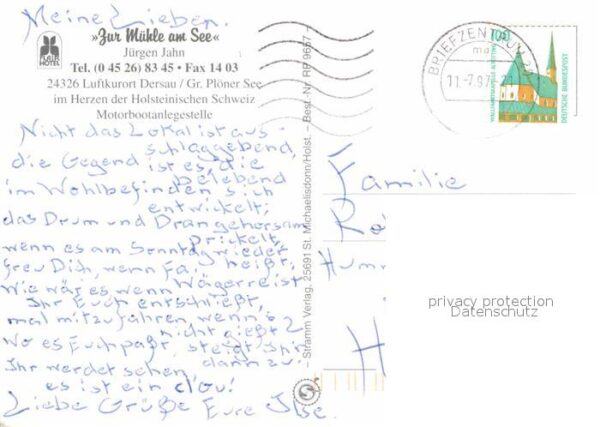 Meine Lieben.
»Zur Mühle am See«
Jürgen Jahn
Tel. (0 45 26) 83 45 • Fax 14 03
24326 Luftkurort Dersau / Gr. Plöner See
im Herzen der Holsteinischen Schweiz
Motorbootanlegestelle
FLAIR HOTEL
Nicht das Lokal ist aus-
schlaggebend,
die Gegend ist es, die
belebend
im Wohlbefinden sich
entwickelt;
das Drum und Dran gehorsam
prickelt,
wenn es am Sonntag wieder
heißt;
freu Dich, wenn
Wie wär es wenn
Ihr Euch entschließt,
mal mitzufahren, wenn's
nicht gießt?
Wo es Euch paßt, steigt Ihr
dann zu.
Ihr werdet sehen,
es ist ein clou!
Liebe Grüße Eure Ilse.
– Stramm Verlag, 25691 St. Michaelisdonn/Holst. – Best. Nr. RP 9657
BRIEFZENTRUM
11.-7.97
100
WALLFAHRTSKAPELLE ALTÖTTING
DEUTSCHE BUNDESPOST
Familie
privacy protection
Datenschutz